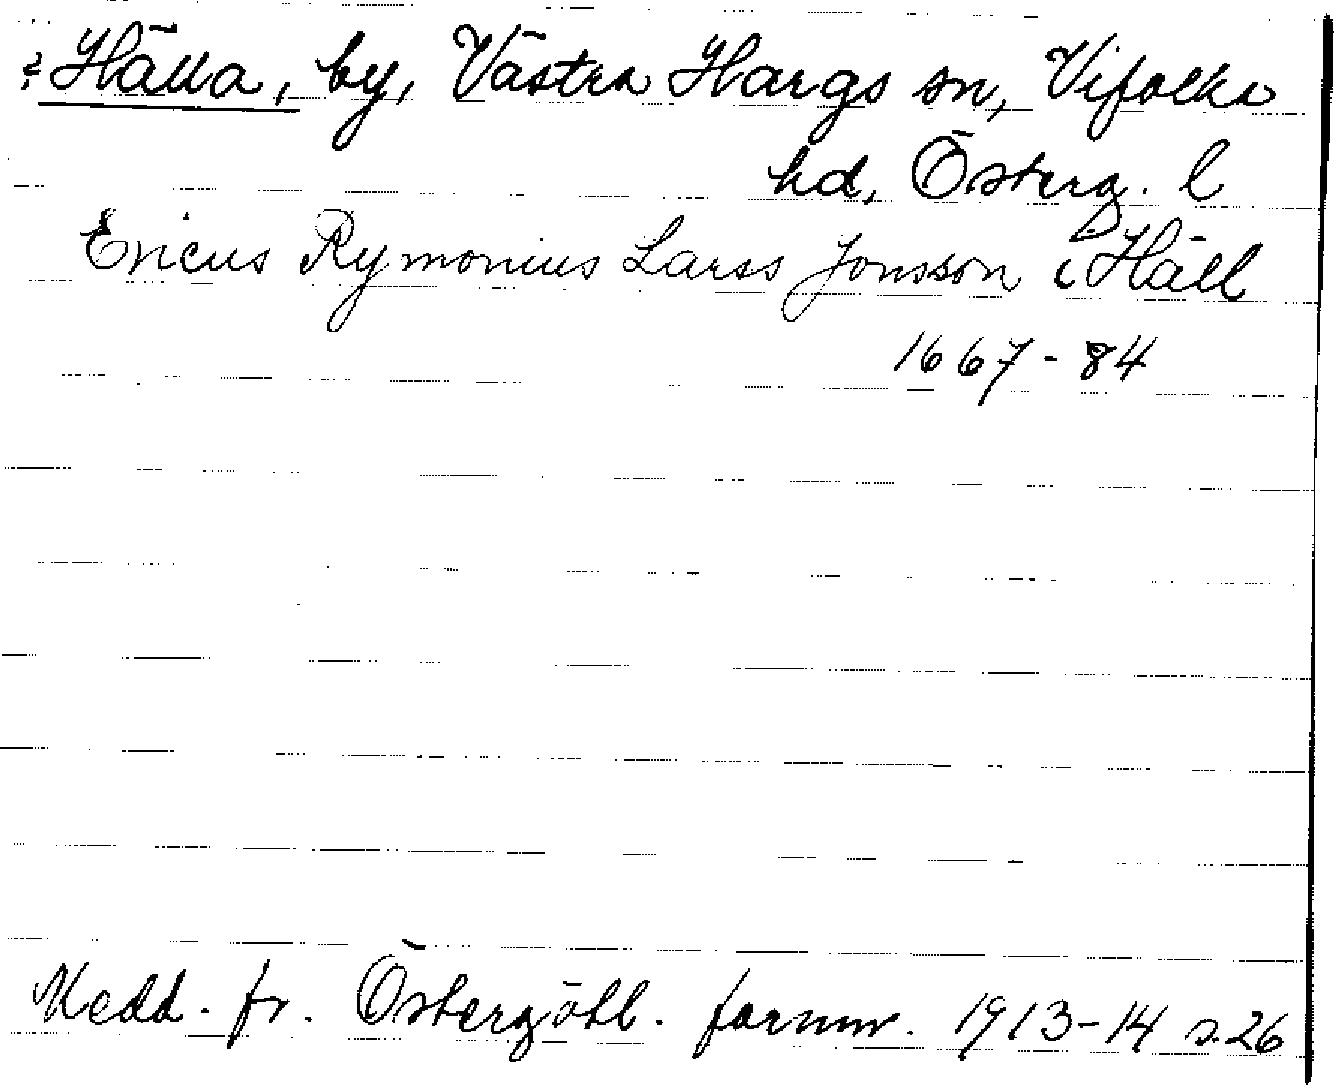 Hälla, by, Västra Hargs sn, Vifolka
hd, Österg. l
Ericus Rymonius Larss Jonsson i Häll
1667-84
Medd. fr. Östergötl. fornm. 1913-14 s. 26